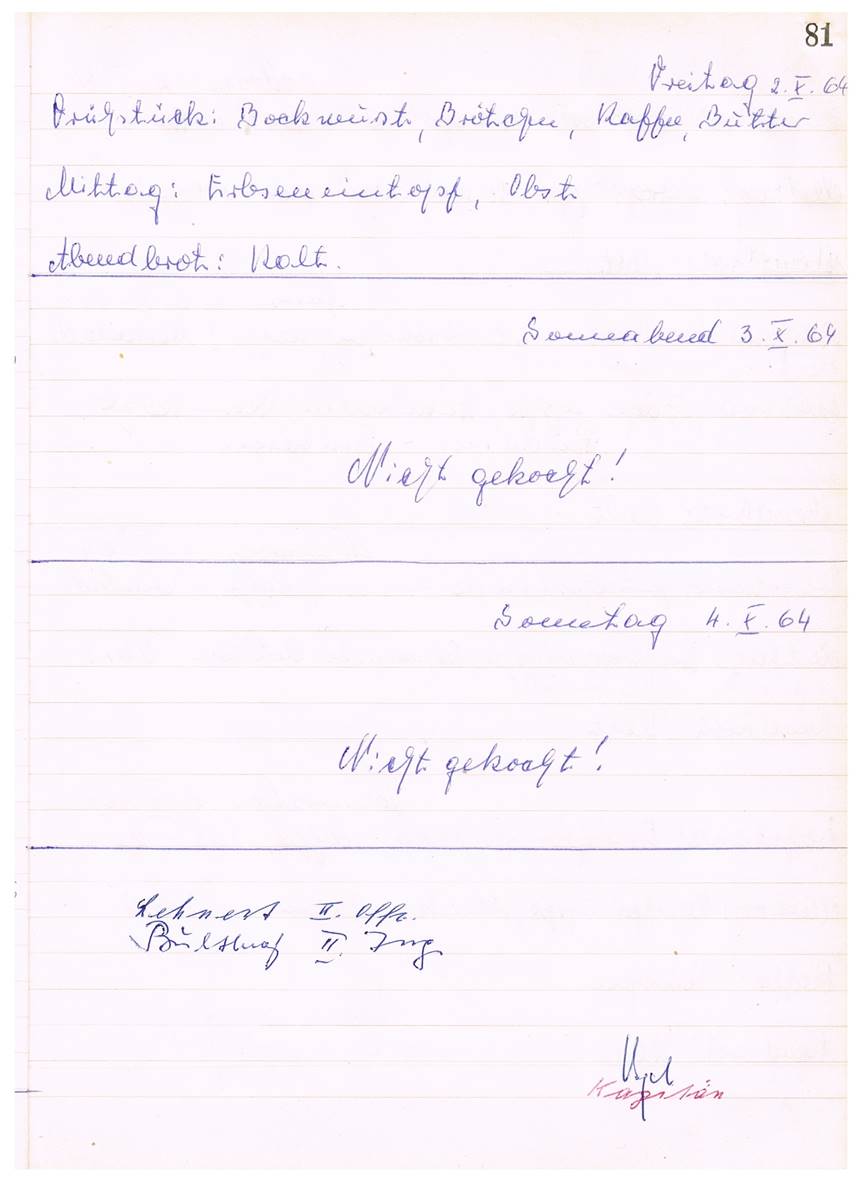 81
Freitag 2.X.64
Frühstück: Bockwurst, Brötchen, Kaffee, Butter
Mittag: Erbseneintopf, Obst
Abendbrot: Kalt.
Sonnabend 3.X.64
Nicht gekocht!
Sonntag 4.X.64
Nicht gekocht!
Lehnert II. Offz.
II. Ing
Kapitän